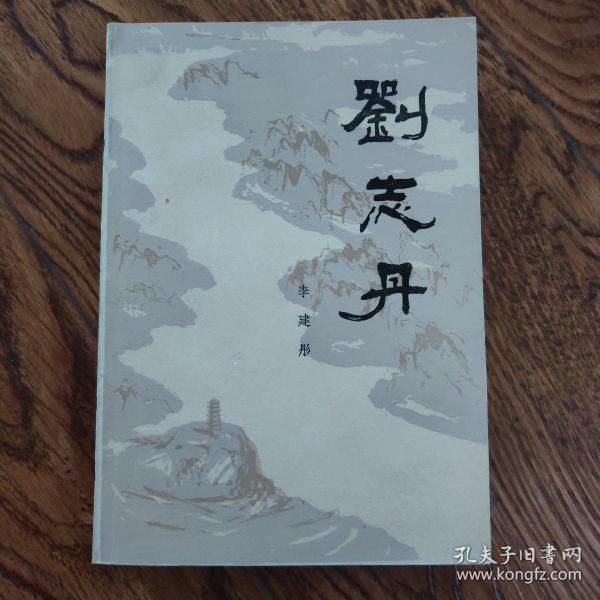 劉志丹
李建彤
孔夫子旧書网
www.kongfz.com